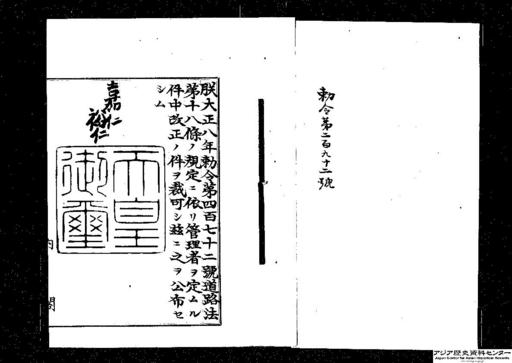 勅令第二百九十二號
朕大正八年勅令第四百七十二號道路法
第十八條ノ規定ニ依リ管理者ヲ定ムル
件中改正ノ件ヲ裁可シ玆ニ之ヲ公布セ
シム
嘉仁
裕仁
天皇
御璽
内
閣
アジア歴史資料センター
Japan Center for Asian Historical Records